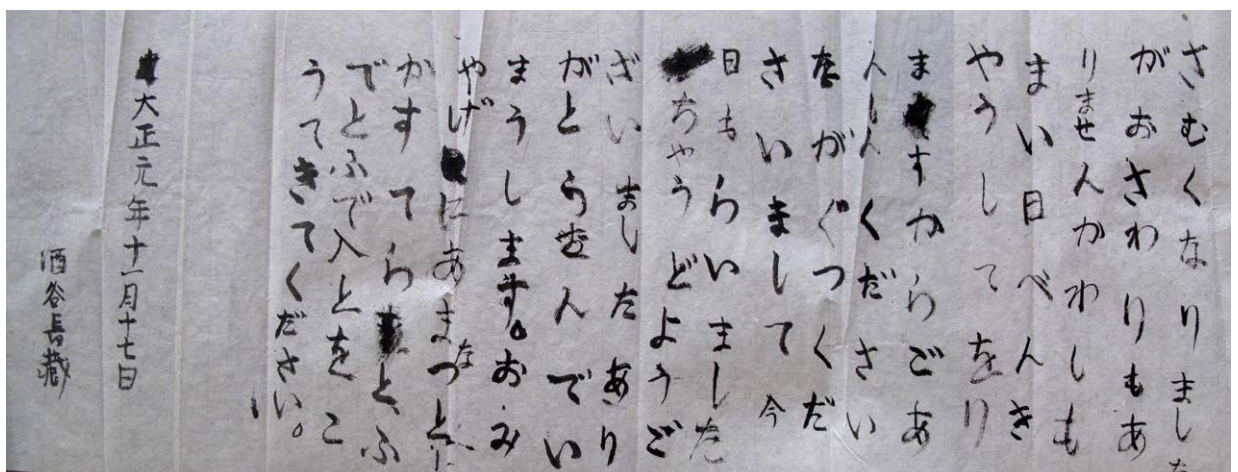 さむくなりました
がおさわりもあ
りませんかわしも
まい日べんき
やうしてをり
ますからごあ
んしんください
ながぐつくだ
さいまして今
日もらいました
ちやうどようご
ざいましたあり
がとうぞんでい
まうします。おみ
やげにあまなつと
かすてらと、ふ
でとふで入とをこ
うてきてください。
大正元年十一月十七日
酒谷長蔵